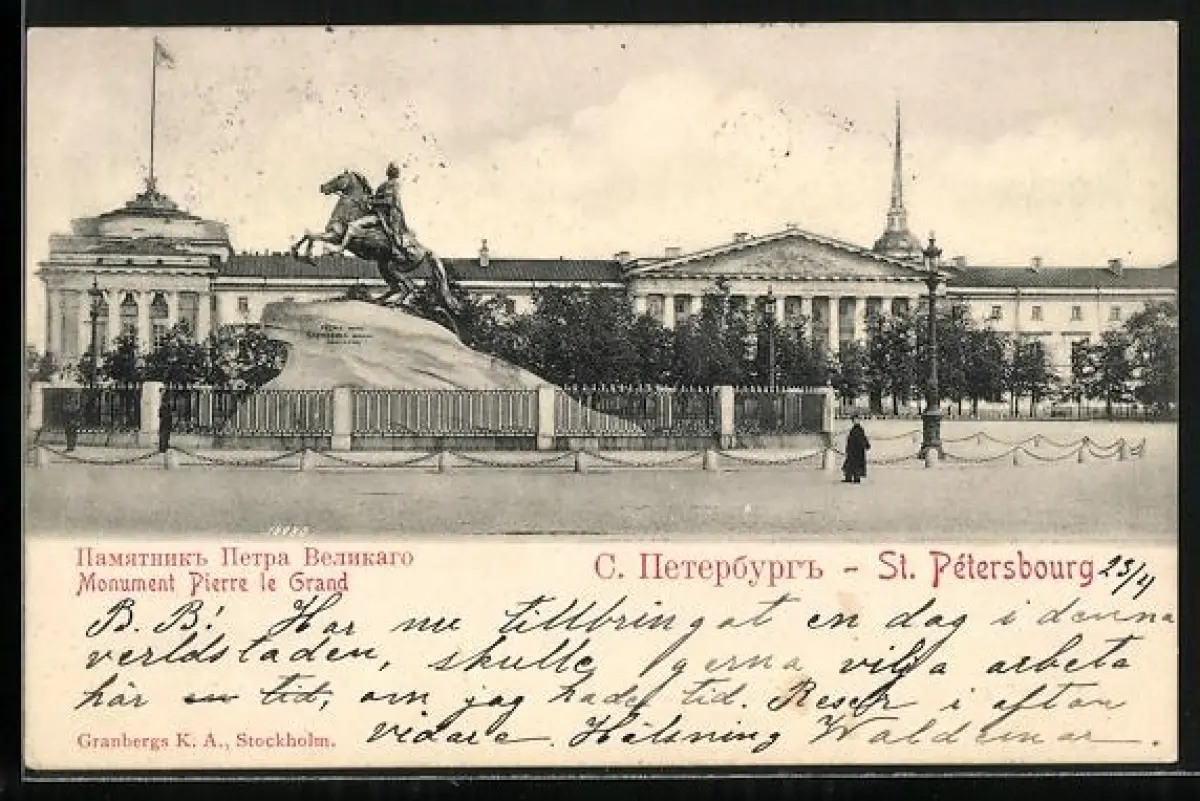 Памятникъ Петра Великаго
Monument Pierre le Grand
С. Петербургъ - St. Pétersbourg 23/4
B. B! Har nu tillbringat en dag i denna
verldsstaden, skulle gerna vilja arbeta
här en tid, om jag hade tid. Reser i afton
vidare. Hälsning Waldemar.
Granbergs K. A., Stockholm.